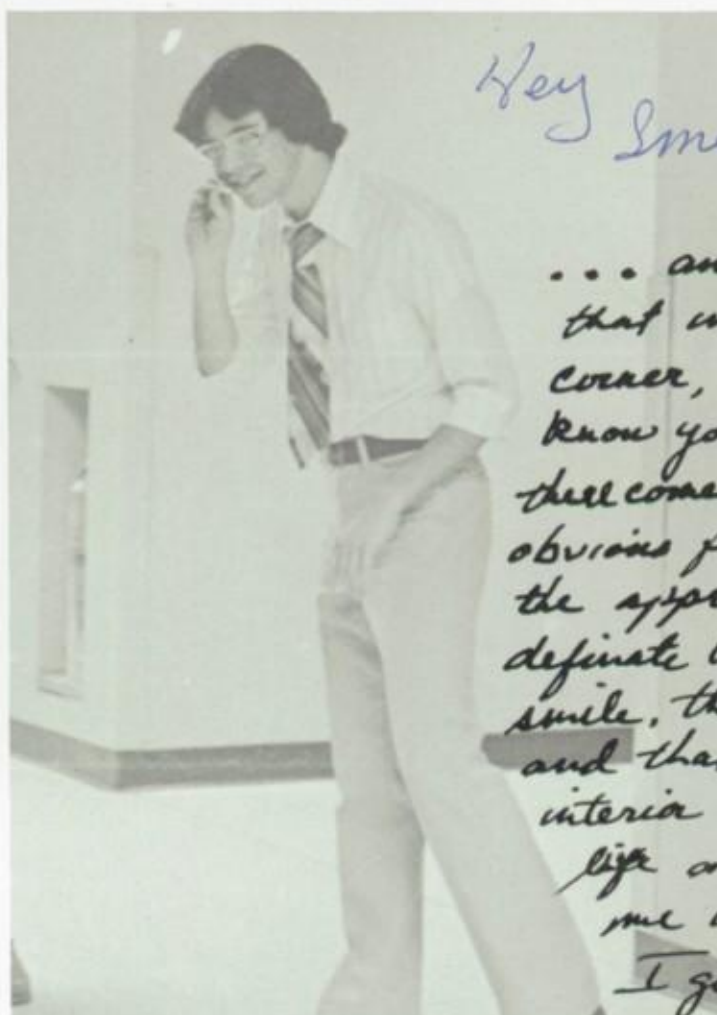 Hey
Sm
... an
that
corner,
know yo
there come
obvious f
the appr
definate
smile, th
and tha
interior
life o
me
I g